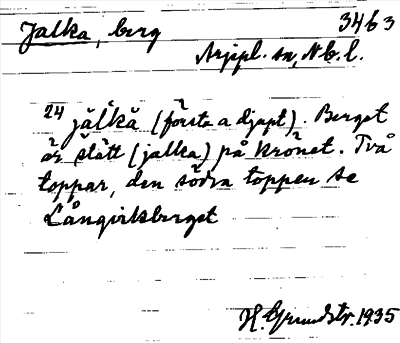 Jalka, berg 3463
Arjepl. sn, Nb. l.
24 jălkă (första a djupt). Berget
är slätt (jalka) på krönet. Två
toppar, den södra toppen se
Långvikberget
H. Grundstr. 1935